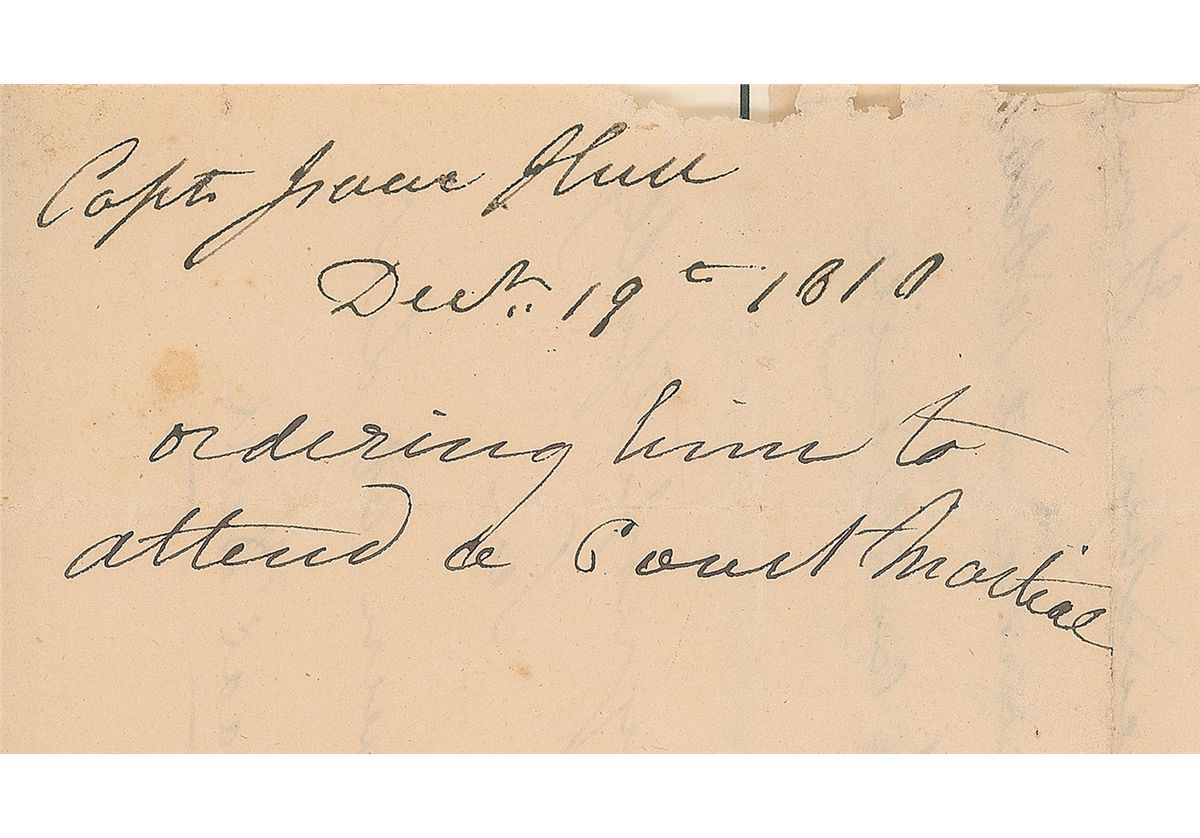 Capt. Isaac Hull
Decr. 19th 1810
ordering him to
attend a Court Martial